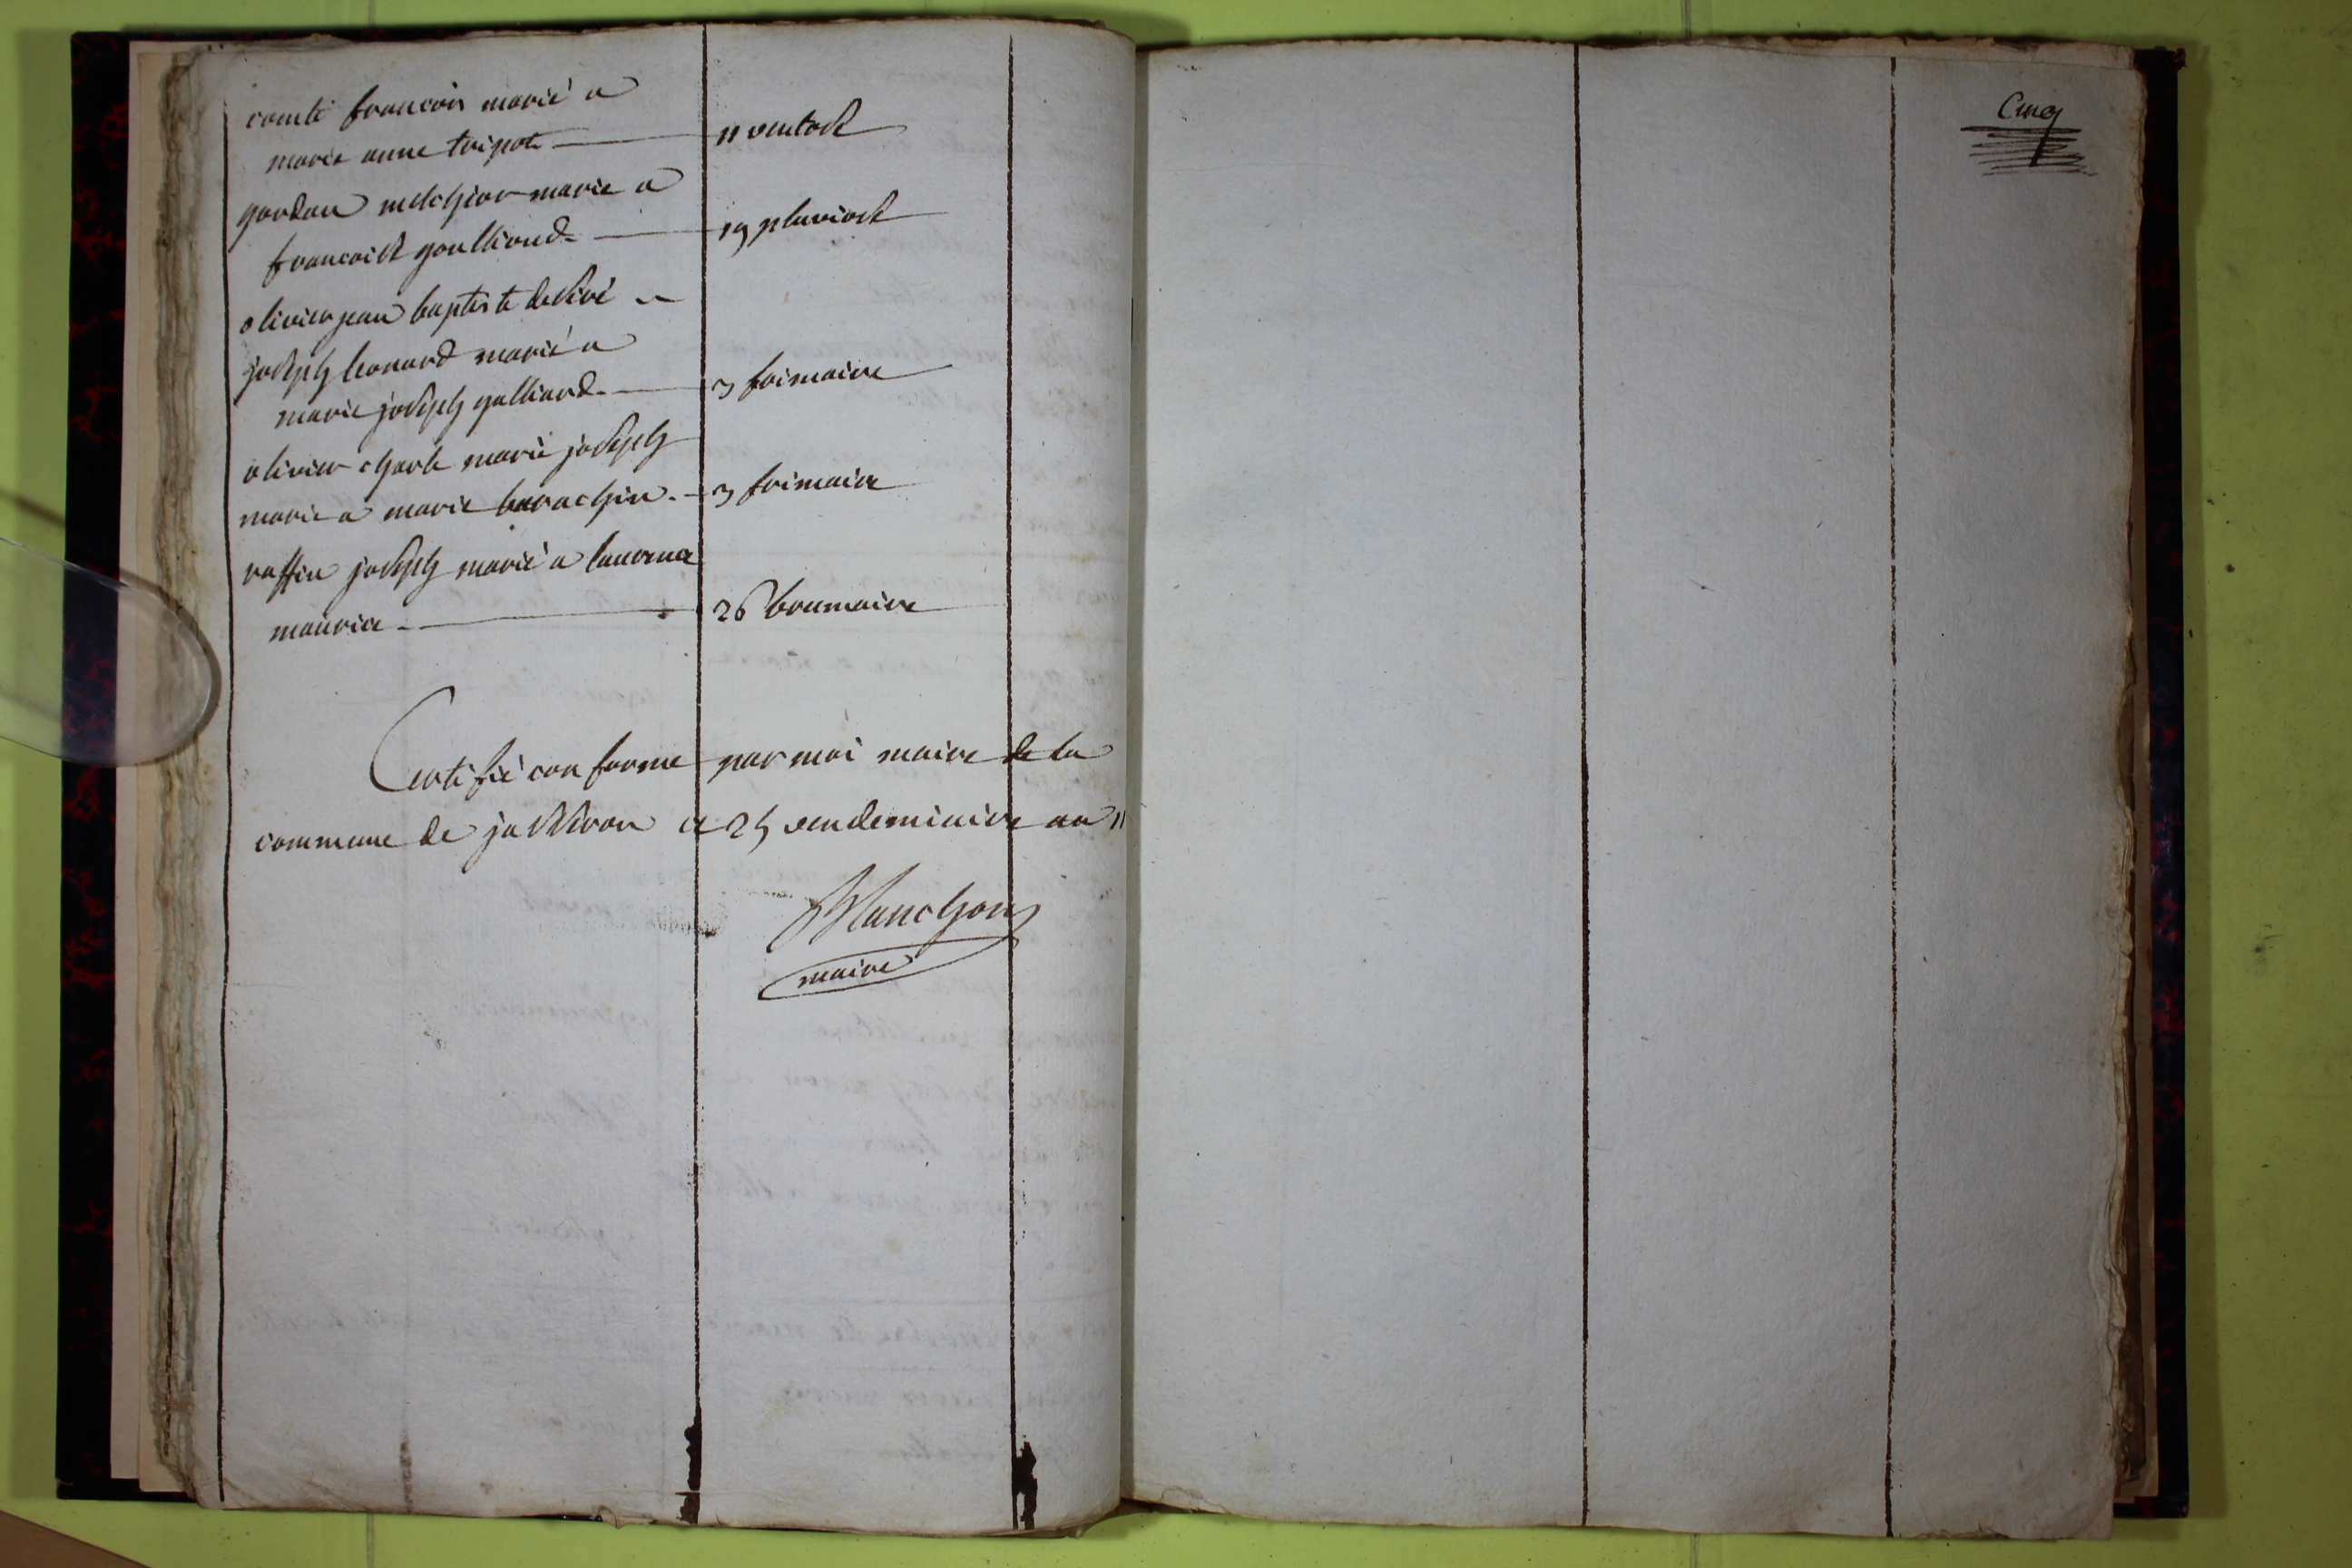 comte francois marié a
marie anne tripot 11 ventose
gardan melchior marie a
francoise goulliaud 19 pluviose
olivier jean baptiste desiré
joseph leonard marié a
marie joseph galliard 3 frimaire
olivier charle marie joseph
marie a marie barachin 3 frimaire
raffin joseph marié a laurence
maurice 26 brumaire
Certifié conforme par moi maire de la
commune de jasseron ce 25 vendemiaire an 11
Blanchon
maire
Cinq